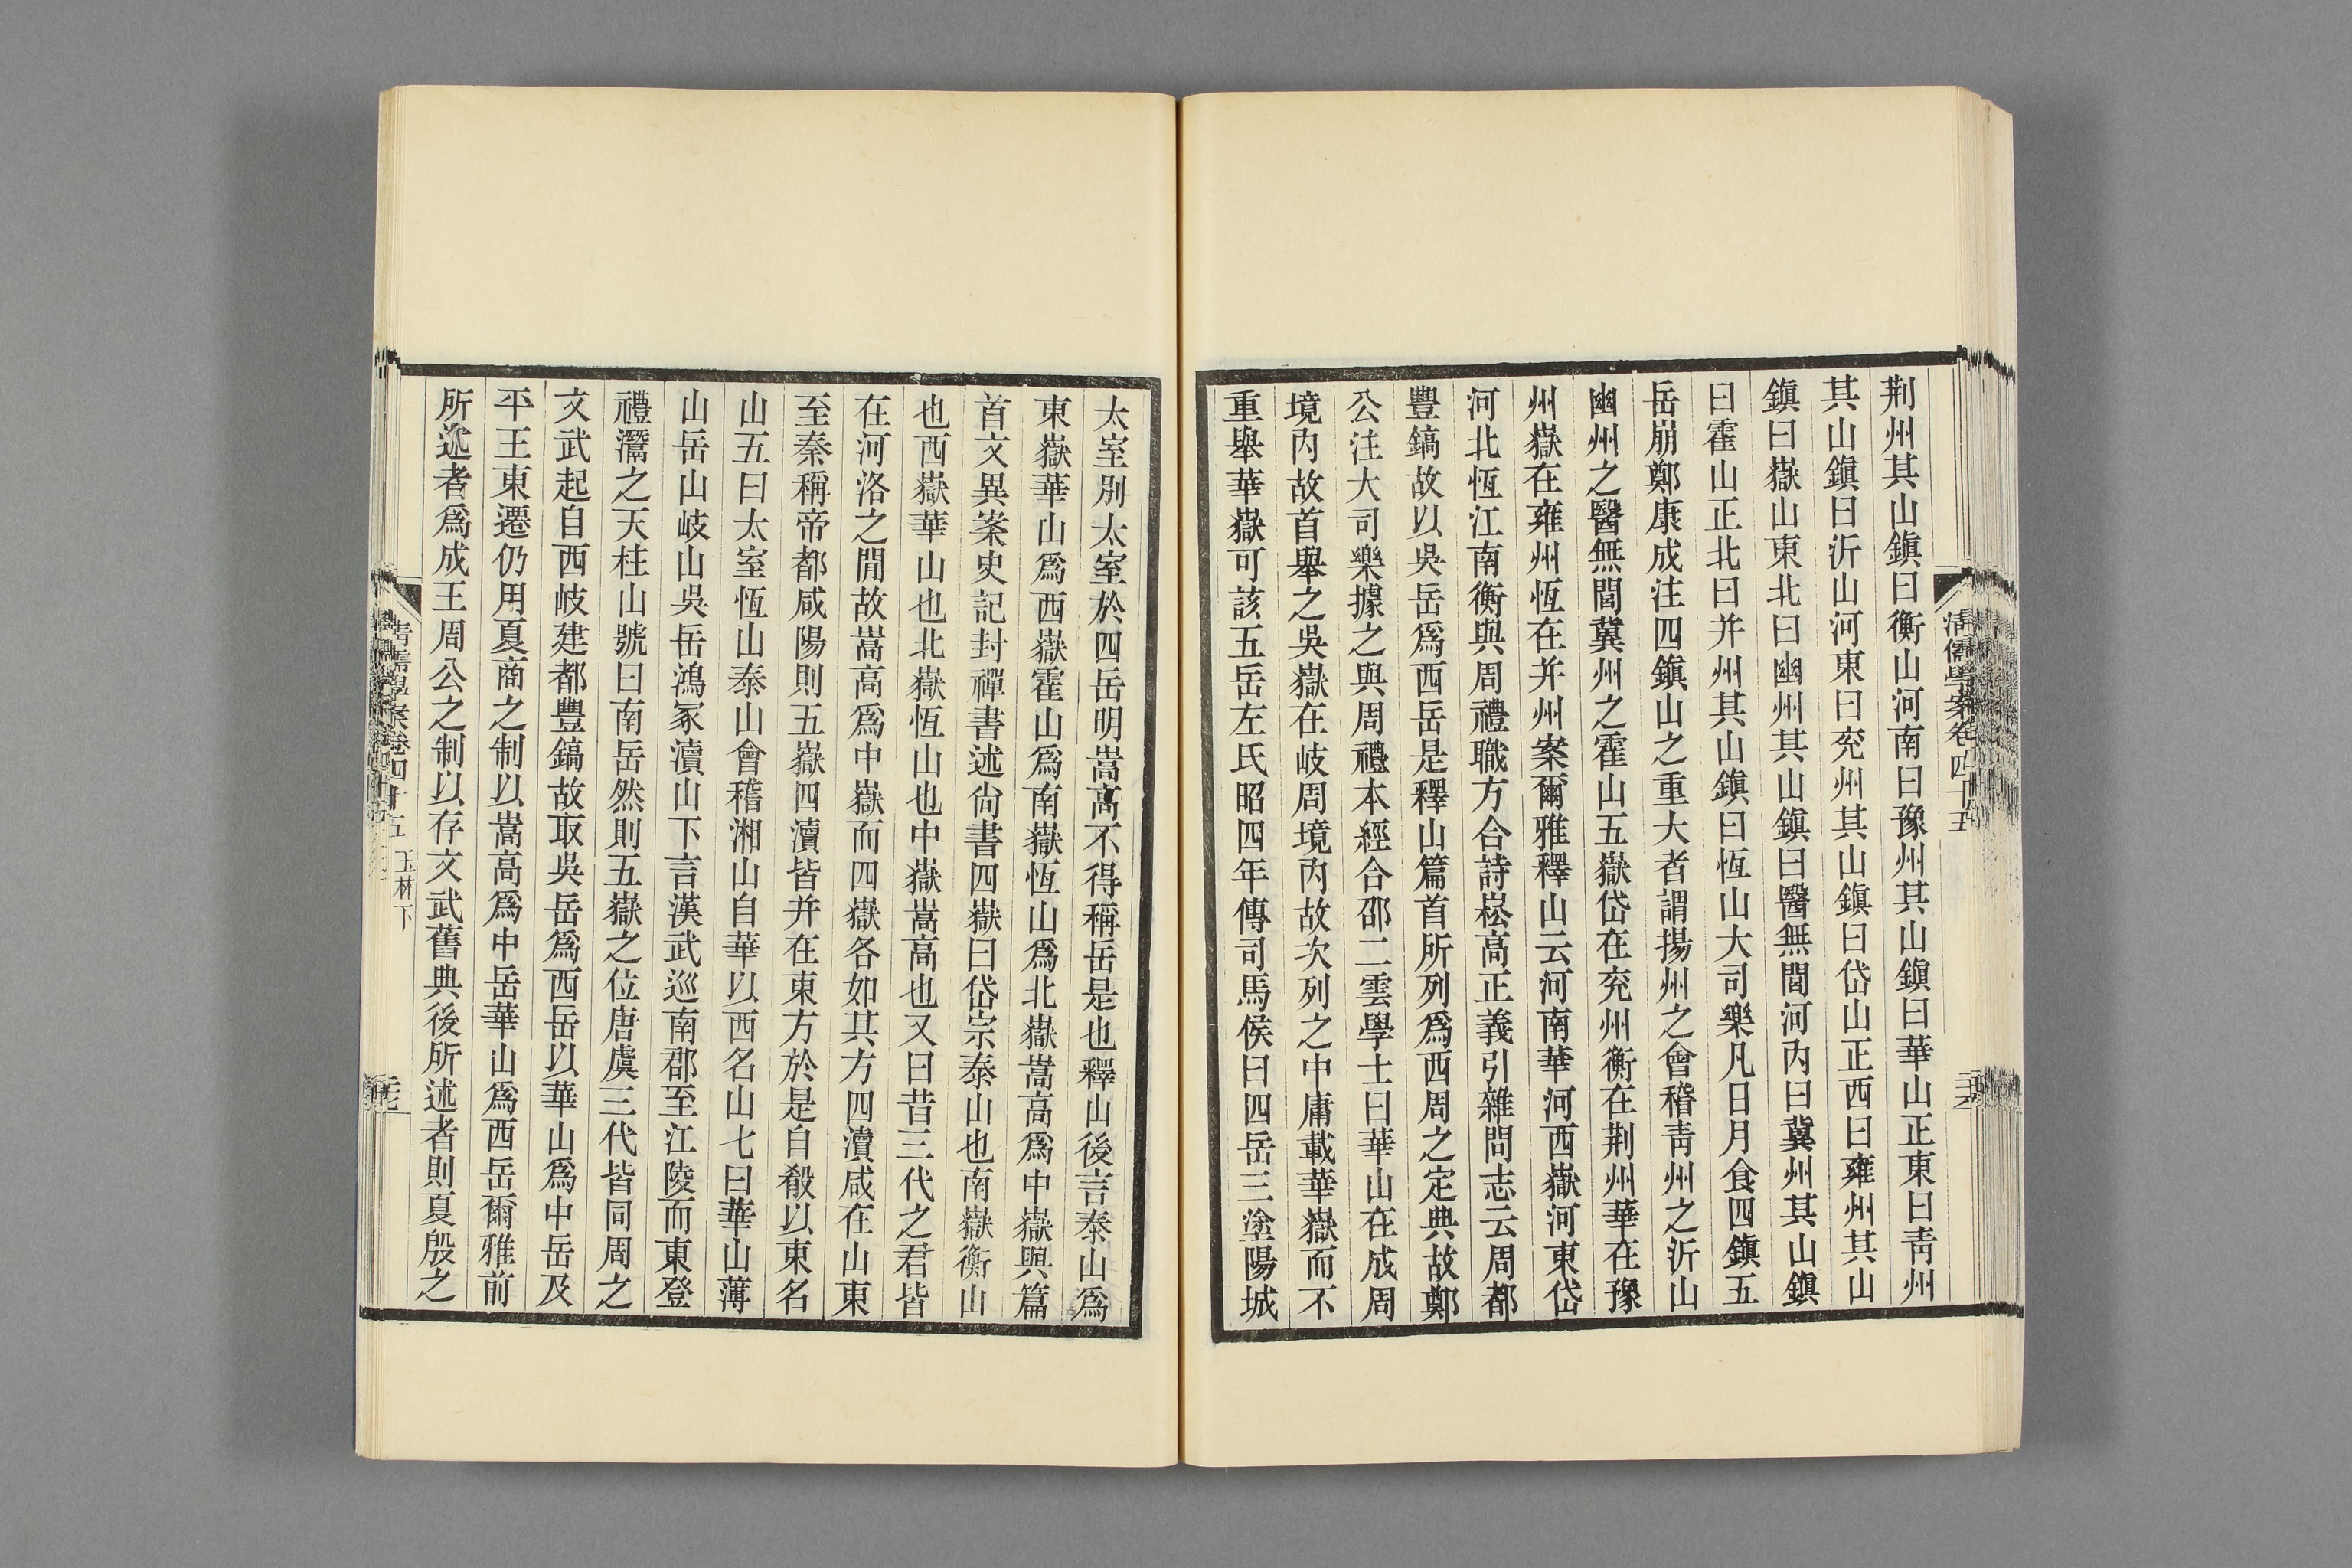 清儒學案卷四十五
荆州其山鎭曰衡山河南曰豫州其山鎭曰華山正東曰靑州
其山鎭曰沂山河東曰兖州其山鎭曰岱山正西曰雍州其山
鎭曰嶽山東北曰幽州其山鎭曰醫無閭河內曰冀州其山鎭
曰霍山正北曰并州其山鎭曰恆山大司樂凡日月食四鎭五
岳崩鄭康成注四鎭山之重大者謂揚州之會稽靑州之沂山
幽州之醫無閭冀州之霍山五嶽岱在兖州衡在荆州華在豫
州嶽在雍州恆在并州案爾雅釋山云河南華河西嶽河東岱
河北恆江南衡與周禮職方合詩崧高正義引雜問志云周都
豐鎬故以吳岳爲西岳是釋山篇首所列爲西周之定典故鄭
公注大司樂據之與周禮本經合邵二雲學士曰華山在成周
境內故首舉之吳嶽在岐周境內故次列之中庸載華嶽而不
重舉華嶽可該五岳左氏昭四年傳司馬侯曰四岳三塗陽城
太室別太室於四岳明嵩高不得稱岳是也釋山後言泰山爲
東嶽華山爲西嶽霍山爲南嶽恆山爲北嶽嵩高爲中嶽與篇
首文異案史記封禪書述尙書四嶽曰岱宗泰山也南嶽衡山
也西嶽華山也北嶽恆山也中嶽嵩高也又曰昔三代之君皆
在河洛之閒故嵩高爲中嶽而四嶽各如其方四瀆咸在山東
至秦稱帝都咸陽則五嶽四瀆皆并在東方於是自殽以東名
山五曰太室恆山泰山會稽湘山自華以西名山七曰華山薄
山岳山岐山吳岳鴻冢瀆山下言漢武巡南郡至江陵而東登
禮灊之天柱山號曰南岳然則五嶽之位唐虞三代皆同周之
文武起自西岐建都豐鎬故取吳岳爲西岳以華山爲中岳及
平王東遷仍用夏商之制以嵩高爲中岳華山爲西岳爾雅前
所述者爲成王周公之制以存文武舊典後所述者則夏殷之
清儒學案卷四十五 玉林下